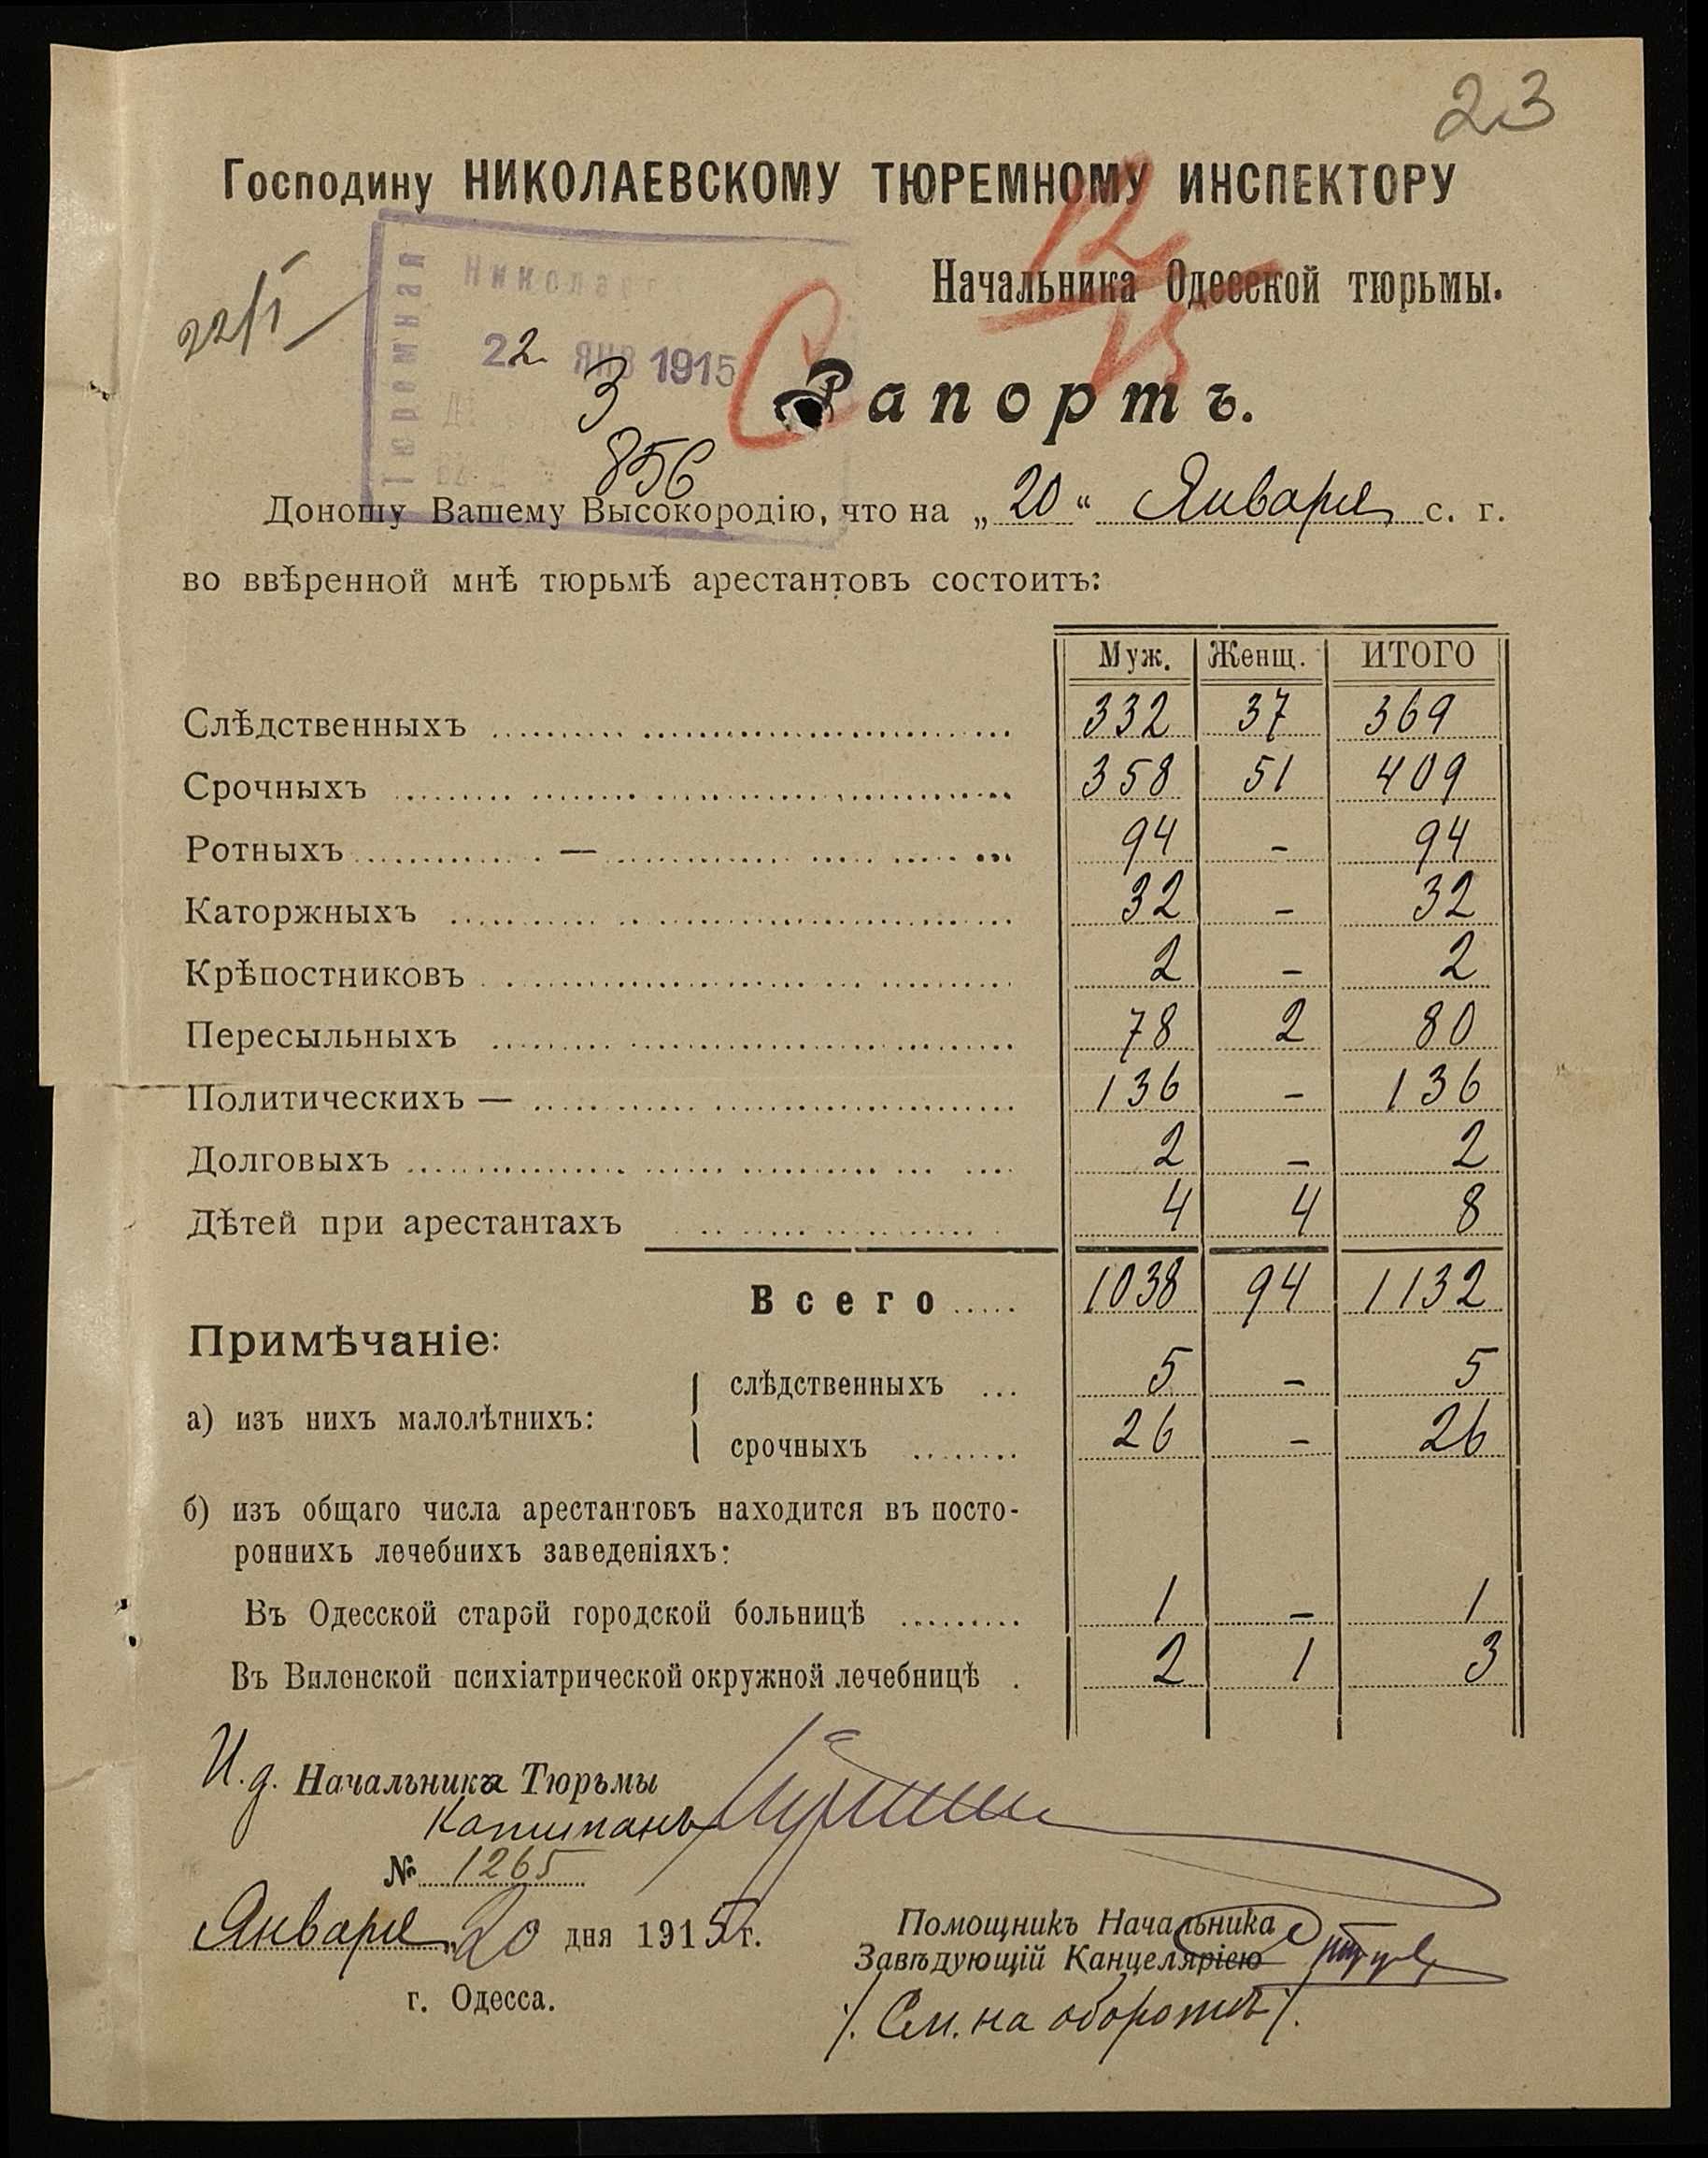 23
Господину НИКОЛАЕВСКОМУ ТЮРЕМНОМУ ИНСПЕКТОРУ
12/15
Начальника Одесской тюрьмы.
22/I
Тюремная
Николаев
22 ЯНВ 1915
3
856
Рапортъ.
Доношу Вашему Высокородію, что на „20“ Января с. г.
во ввѣренной мнѣ тюрьмѣ арестантовъ состоитъ:
Муж. Женщ. ИТОГО
Слѣдственныхъ 332 37 369
Срочныхъ 358 51 409
Ротныхъ — 94 - 94
Каторжныхъ 32 - 32
Крѣпостниковъ 2 - 2
Пересыльныхъ 78 2 80
Политическихъ — 136 - 136
Долговыхъ 2 - 2
Дѣтей при арестантахъ 4 4 8
Всего 1038 94 1132
Примѣчаніе:
а) изъ нихъ малолѣтнихъ:
слѣдственныхъ 5 - 5
срочныхъ 26 - 26
б) изъ общаго числа арестантовъ находится въ посто-
роннихъ лечебнихъ заведеніяхъ:
Въ Одесской старой городской больницѣ 1 - 1
Въ Виленской психіатрической окружной лечебницѣ 2 1 3
И.д. Начальника Тюрьмы
Капитанъ
№ 1265
Января 20 дня 1915 г.
г. Одесса.
Помощникъ Начальника
Завѣдующій Канцелярією
/. См. на оборотѣ /.